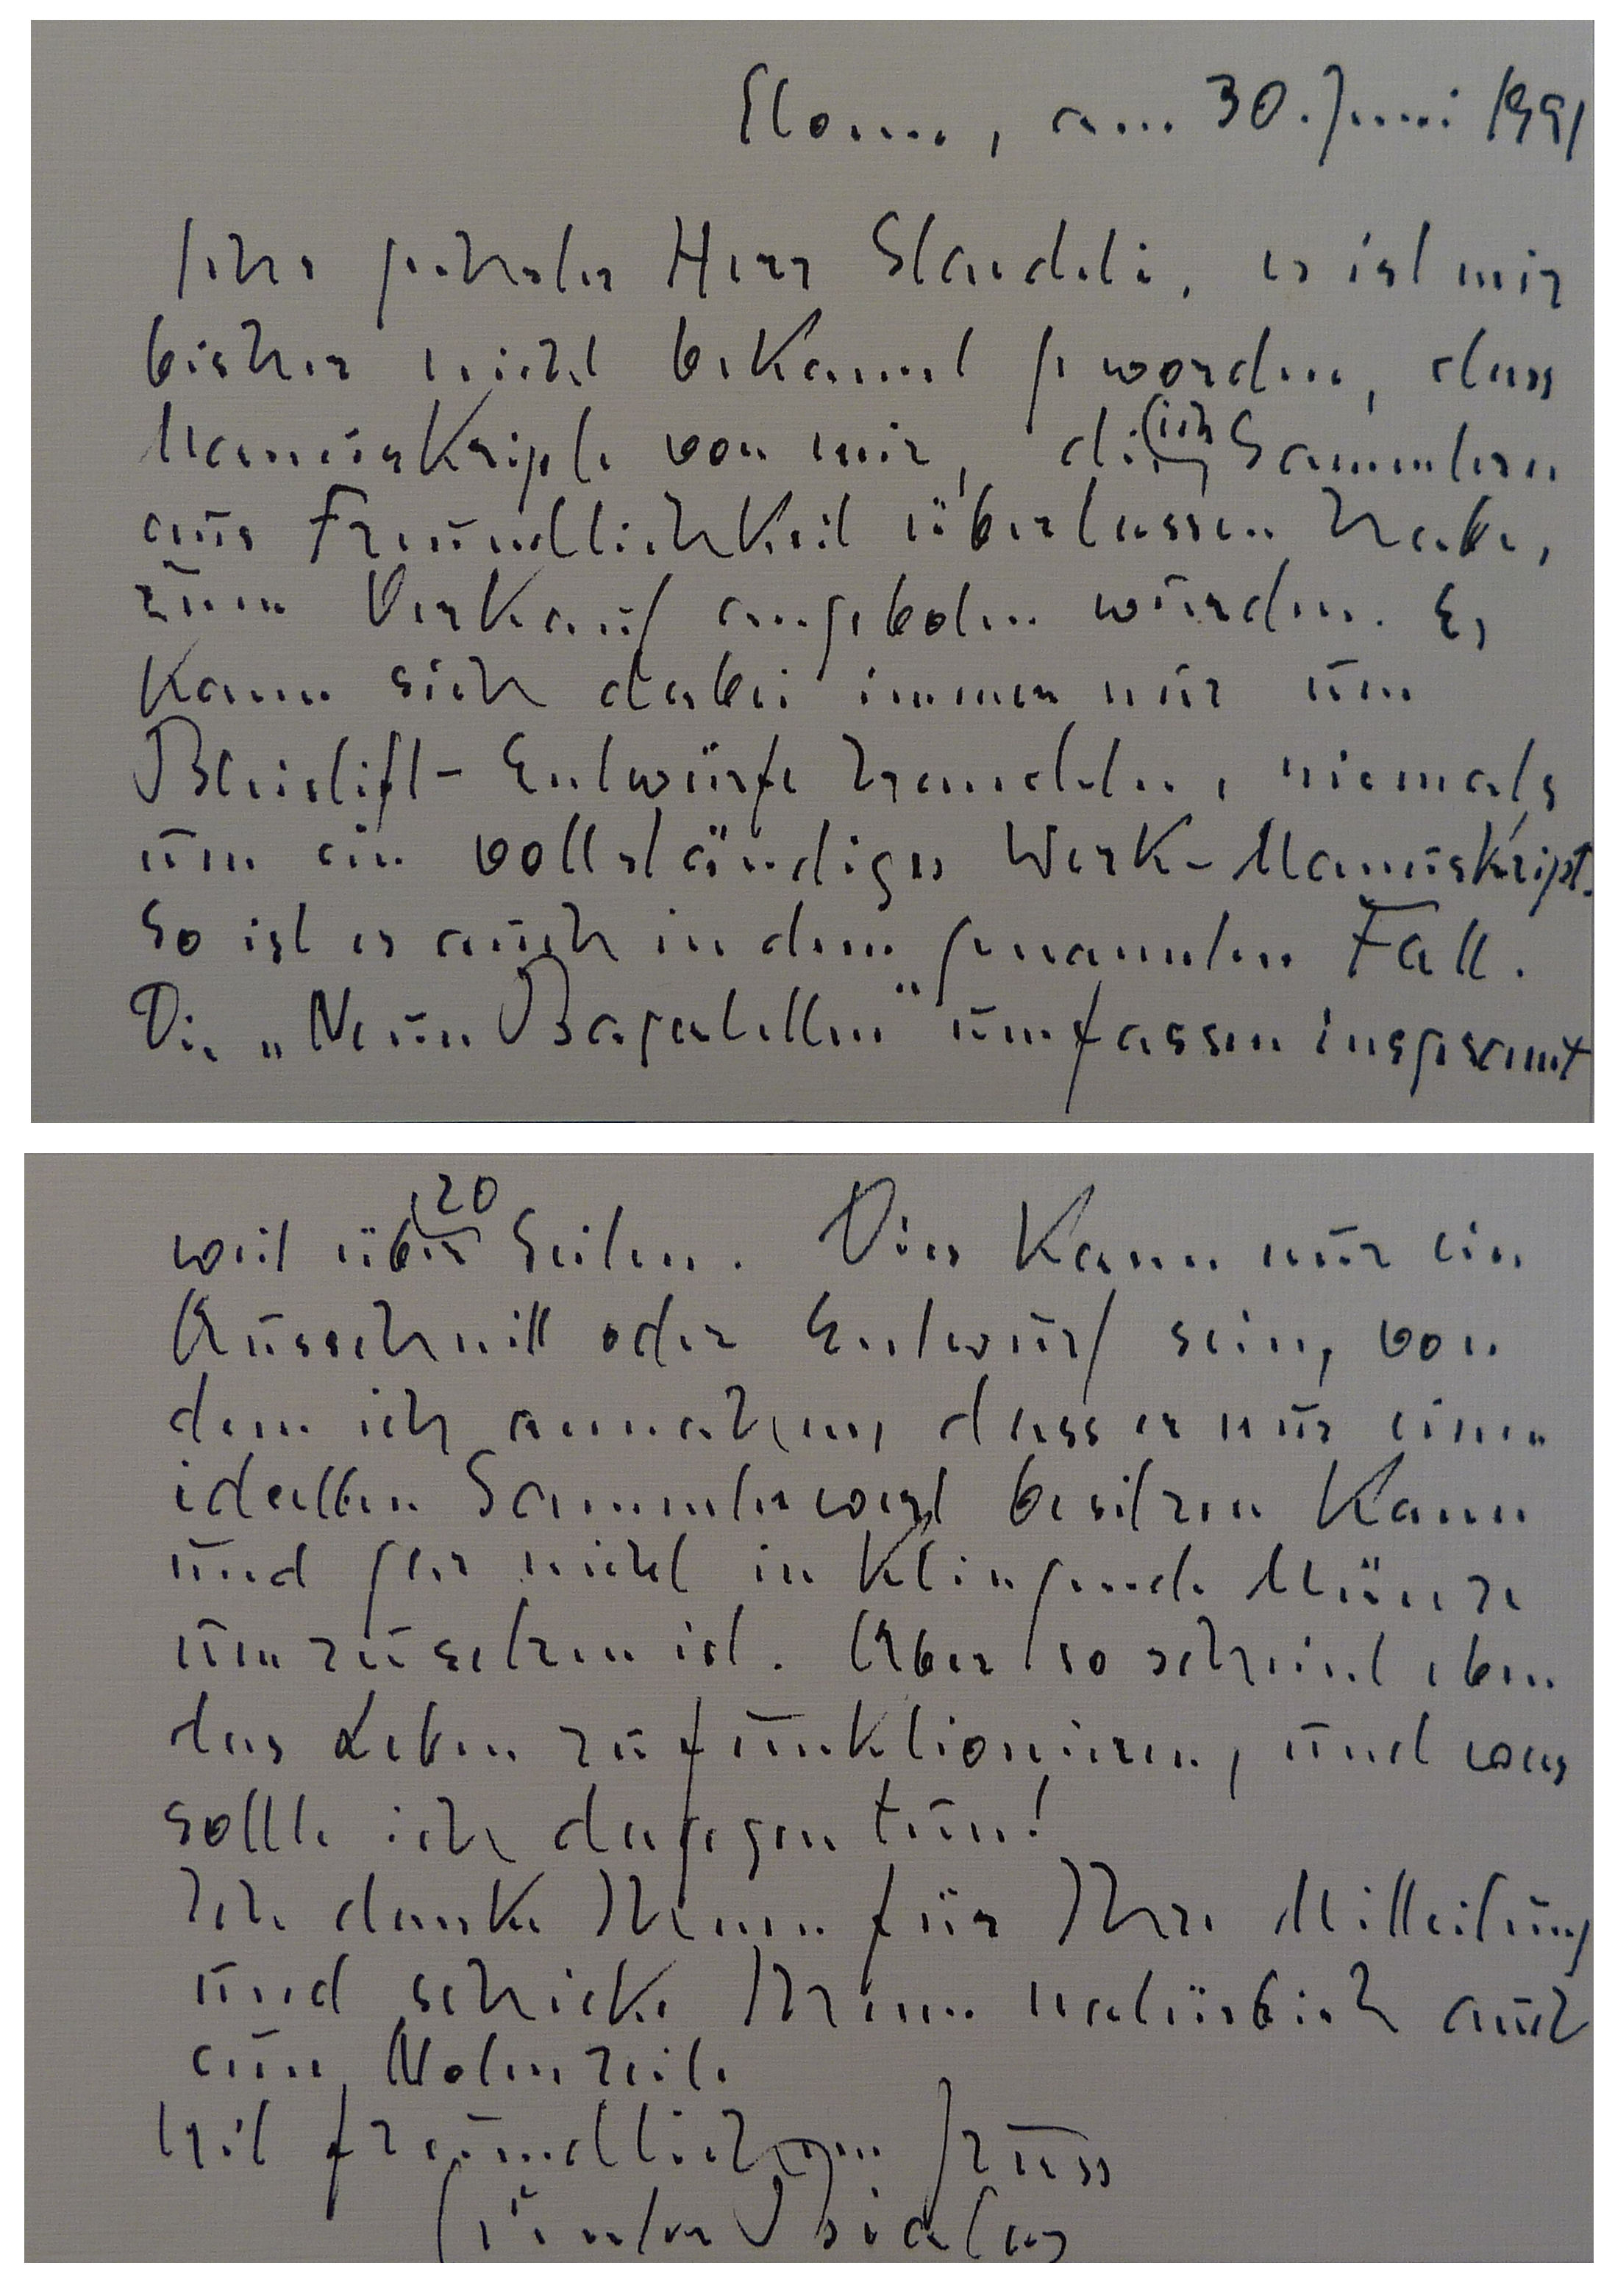 Glonn, am 30. Juni 1991
Sehr geehrter Herr Staudeli, es ist mir
bisher nicht bekannt geworden, dass
Manuskripte von mir, die (ich) Sammlern
aus Freundlichkeit überlassen habe,
zum Verkauf angeboten würden. Es
kann sich dabei immer nur um
Bleistift-Entwürfe handeln, niemals
um ein vollständiges Werk-Manuskript.
So ist es auch in dem genannten Fall.
Die „Neun Bagatellen" umfassen insgesamt
weit über 20 Seiten. Dies kann nur ein
Ausschnitt oder Entwurf sein, von
dem ich annahm, dass er nur einen
ideellen Sammlerwert besitzen kann
und gar nicht in klingende Münze
umzusetzen ist. Aber so scheint eben
das Leben zu funktionieren, und was
sollte ich dagegen tun!
Ich danke Ihnen für Ihre Mitteilung
und schicke Ihnen natürlich auch
eine Notenzeile
Mit freundlichem Gruss
Günter Bialas